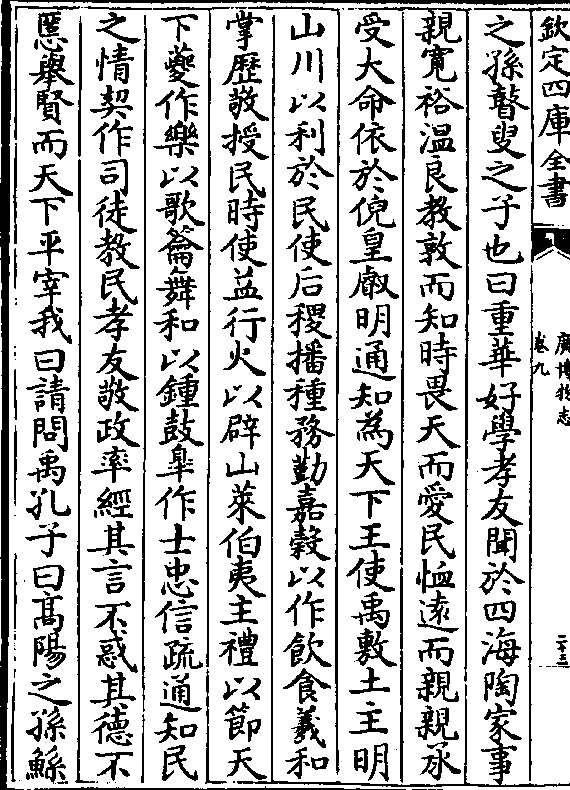 欽定四庫全書
廣博物志
卷九
二十三
之孫瞽叟之子也曰重華好學孝友聞於四海陶家事
親寛裕温良教敦而知時畏天而愛民恤逺而親親承
受大命依於倪皇叡明通知為天下王使禹敷土主明
山川以利於民使后稷播種務勤嘉穀以作飲食羲和
掌歴敬授民時使益行火以辟山萊伯夷主禮以節天
下夔作樂以歌籥舞和以鍾鼓臯作士忠信疏通知民
之情契作司徒教民孝友敬政率經其言不惑其徳不
慝舉賢而天下平宰我曰請問禹孔子曰髙陽之孫鯀